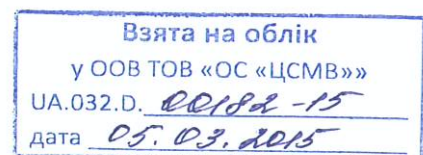 Взята на облік
у ООВ ТОВ «ОС «ЦСМВ»»
UA.032.D. 00182-15
дата 05.03.2015